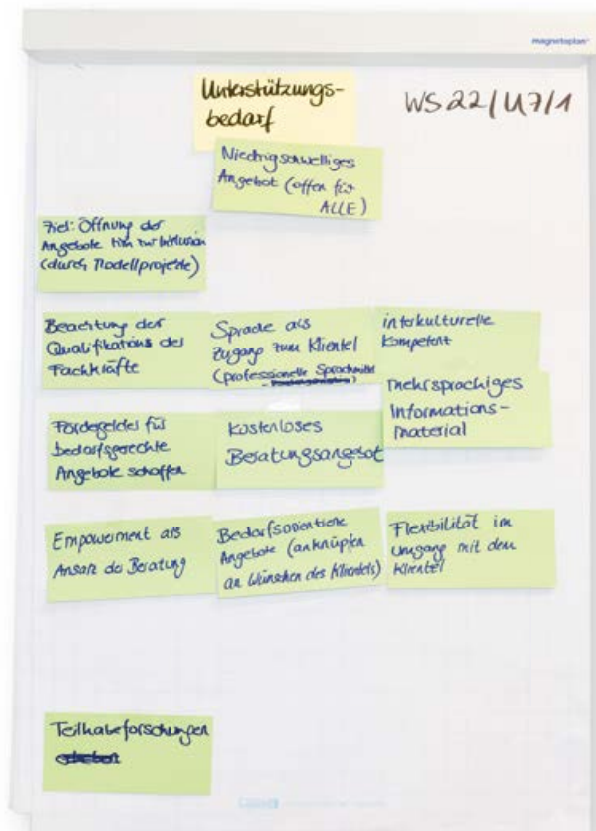 magnetoplan
Unterstützungs-
bedarf
WS22/U7/1
Niedrigschwelliges
Angebot (offen für
ALLE)
Ziel: Öffnung der
Angebote hin zur Inklusion
(durch Modellprojekte)
Beachtung der
Qualifikations der
Fachkräfte
Sprache als
Zugang zum Klientel
(professionelle Sprachmittel
interkulturelle
Kompetenz
mehrsprachiges
Informations-
material
Fördergelder für
bedarfsgerechte
Angebote schaffen
Kostenloses
Beratungsangebot
Empowerment als
Ansatz der Beratung
Bedarfsorientierte
Angebote (anknüpfen
an Wünschen des Klientels)
Flexibilität im
Umgang mit dem
Klientel
Teilhabeforschungen